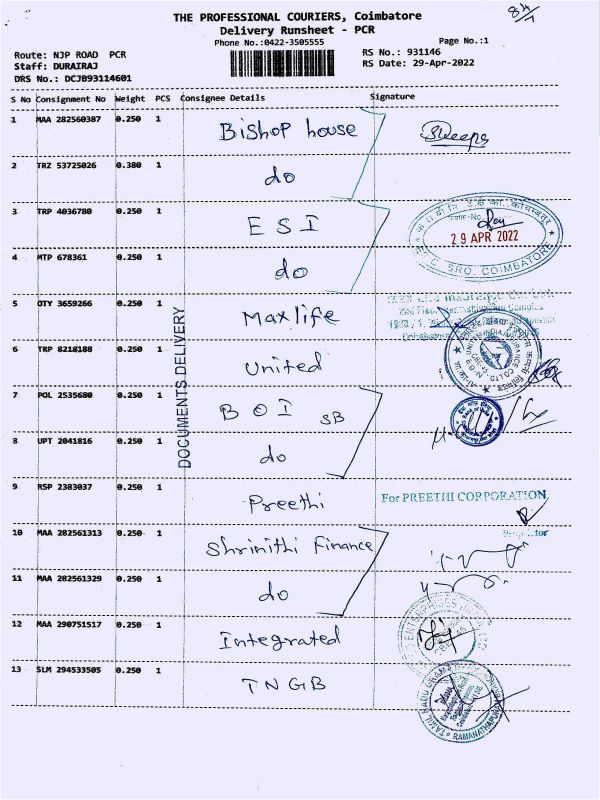 THE PROFESSIONAL COURIERS, Coimbatore
Delivery Runsheet - PCR
Phone No.:0422-3505555
Page No.:1
Route: NJP ROAD PCR
RS No.: 931146
Staff: DURAIRAJ
RS Date: 29-Apr-2022
DRS No.: DCJB93114601
S No Consignment No Weight PCS Consignee Details Signature
1 MAA 282560387 0.250 1 Bishop house
2 TRZ 53725026 0.380 1 do
3 TRP 4036780 0.250 1 ESI
29 APR 2022
SRO. COIMBATORE
4 MTP 678361 0.250 1 do
5 OTY 3659266 0.250 1 Maxlife
6 TRP 8218188 0.250 1 United
DOCUMENTS DELIVERY
7 POL 2535680 0.250 1 BOI SB
8 UPT 2041816 0.250 1 do
9 RSP 2383037 0.250 1 Preethi
For PREETHI CORPORATION,
Proprietor
10 MAA 282561313 0.250 1 Shrinithi Finance
11 MAA 282561329 0.250 1 do
12 MAA 290751517 0.250 1 Integrated
13 SLM 294533505 0.250 1 TNGB
TAMIL NADU GRAMA
RAMANATHAPURAM